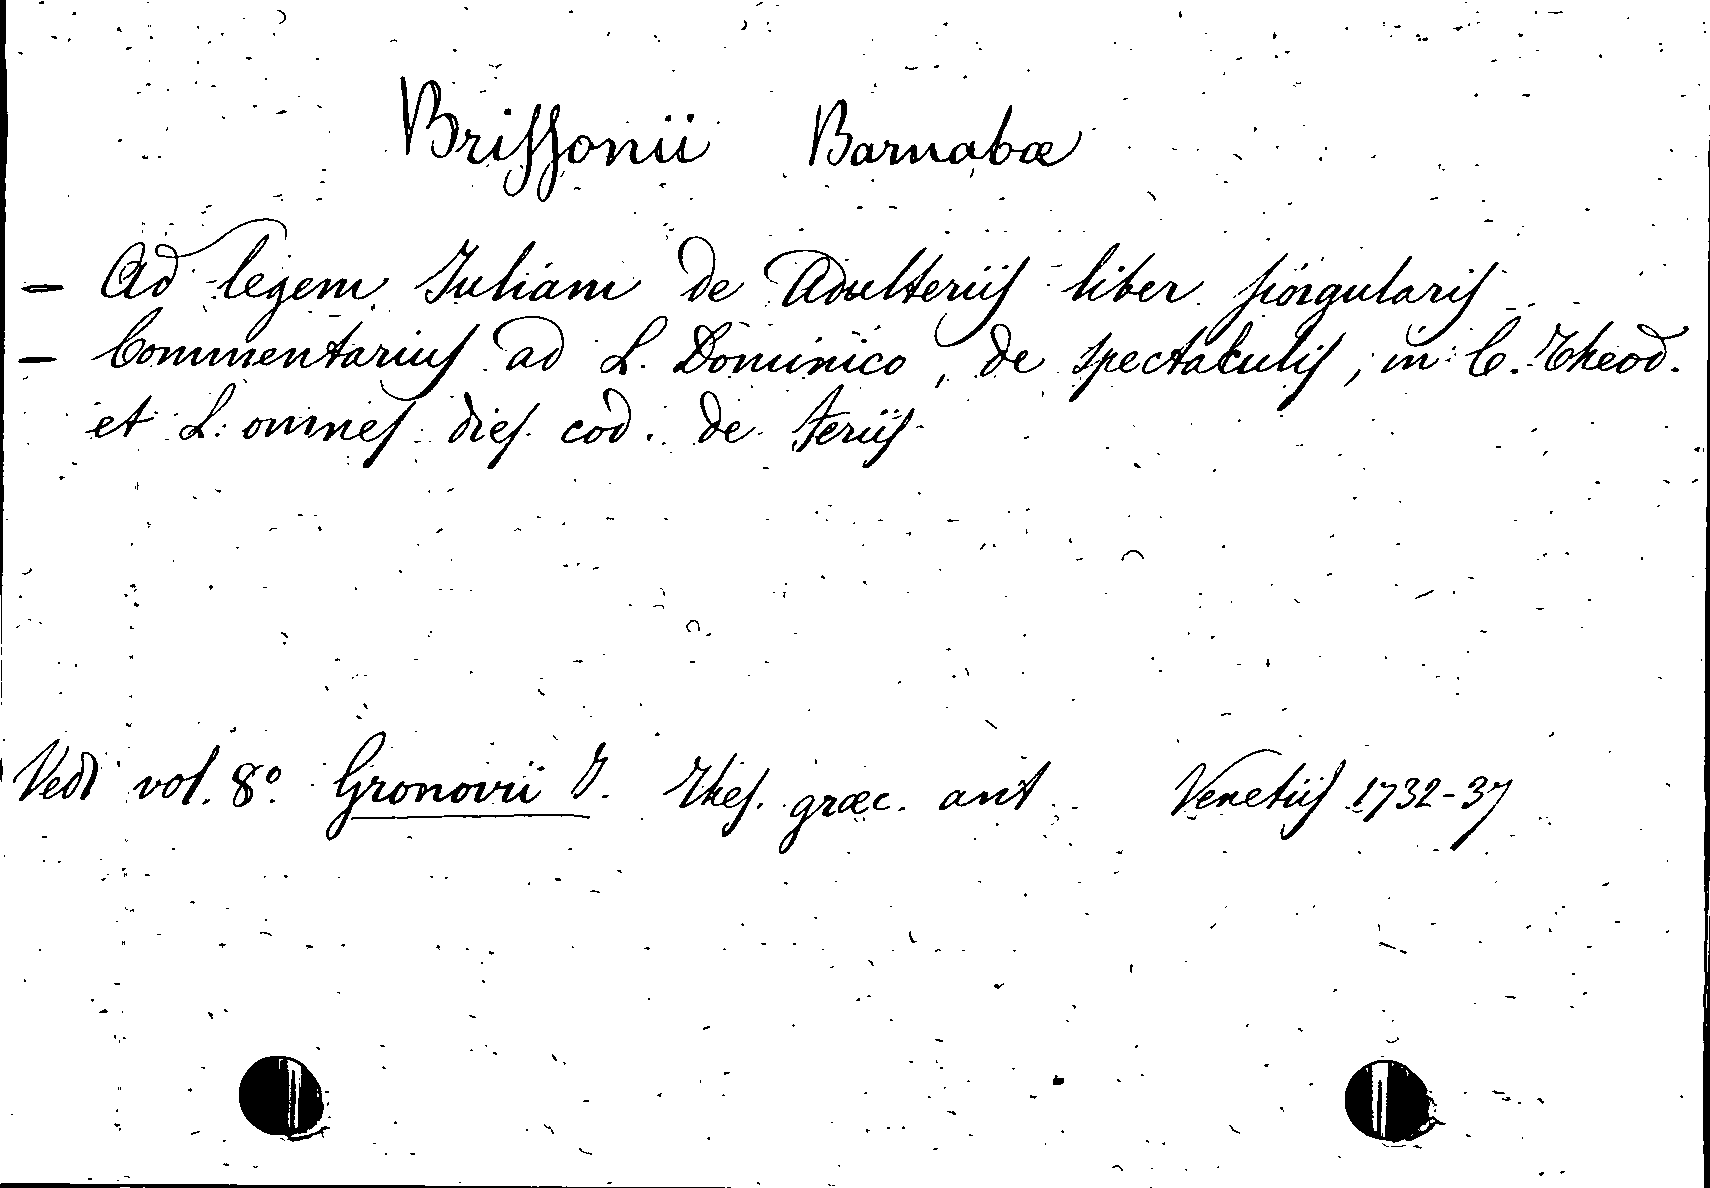 Brissonii Barnabæ
- Ad legem Juliam de Adulteriis liber singularis
- Commentarius ad L. Dominico, de spectakulis, in C. Theod.
et L. omnes dies cod. de feriis
Vedi vol. 8° Gronovii J. Thes. græc. ant. Venetiis 1732-37